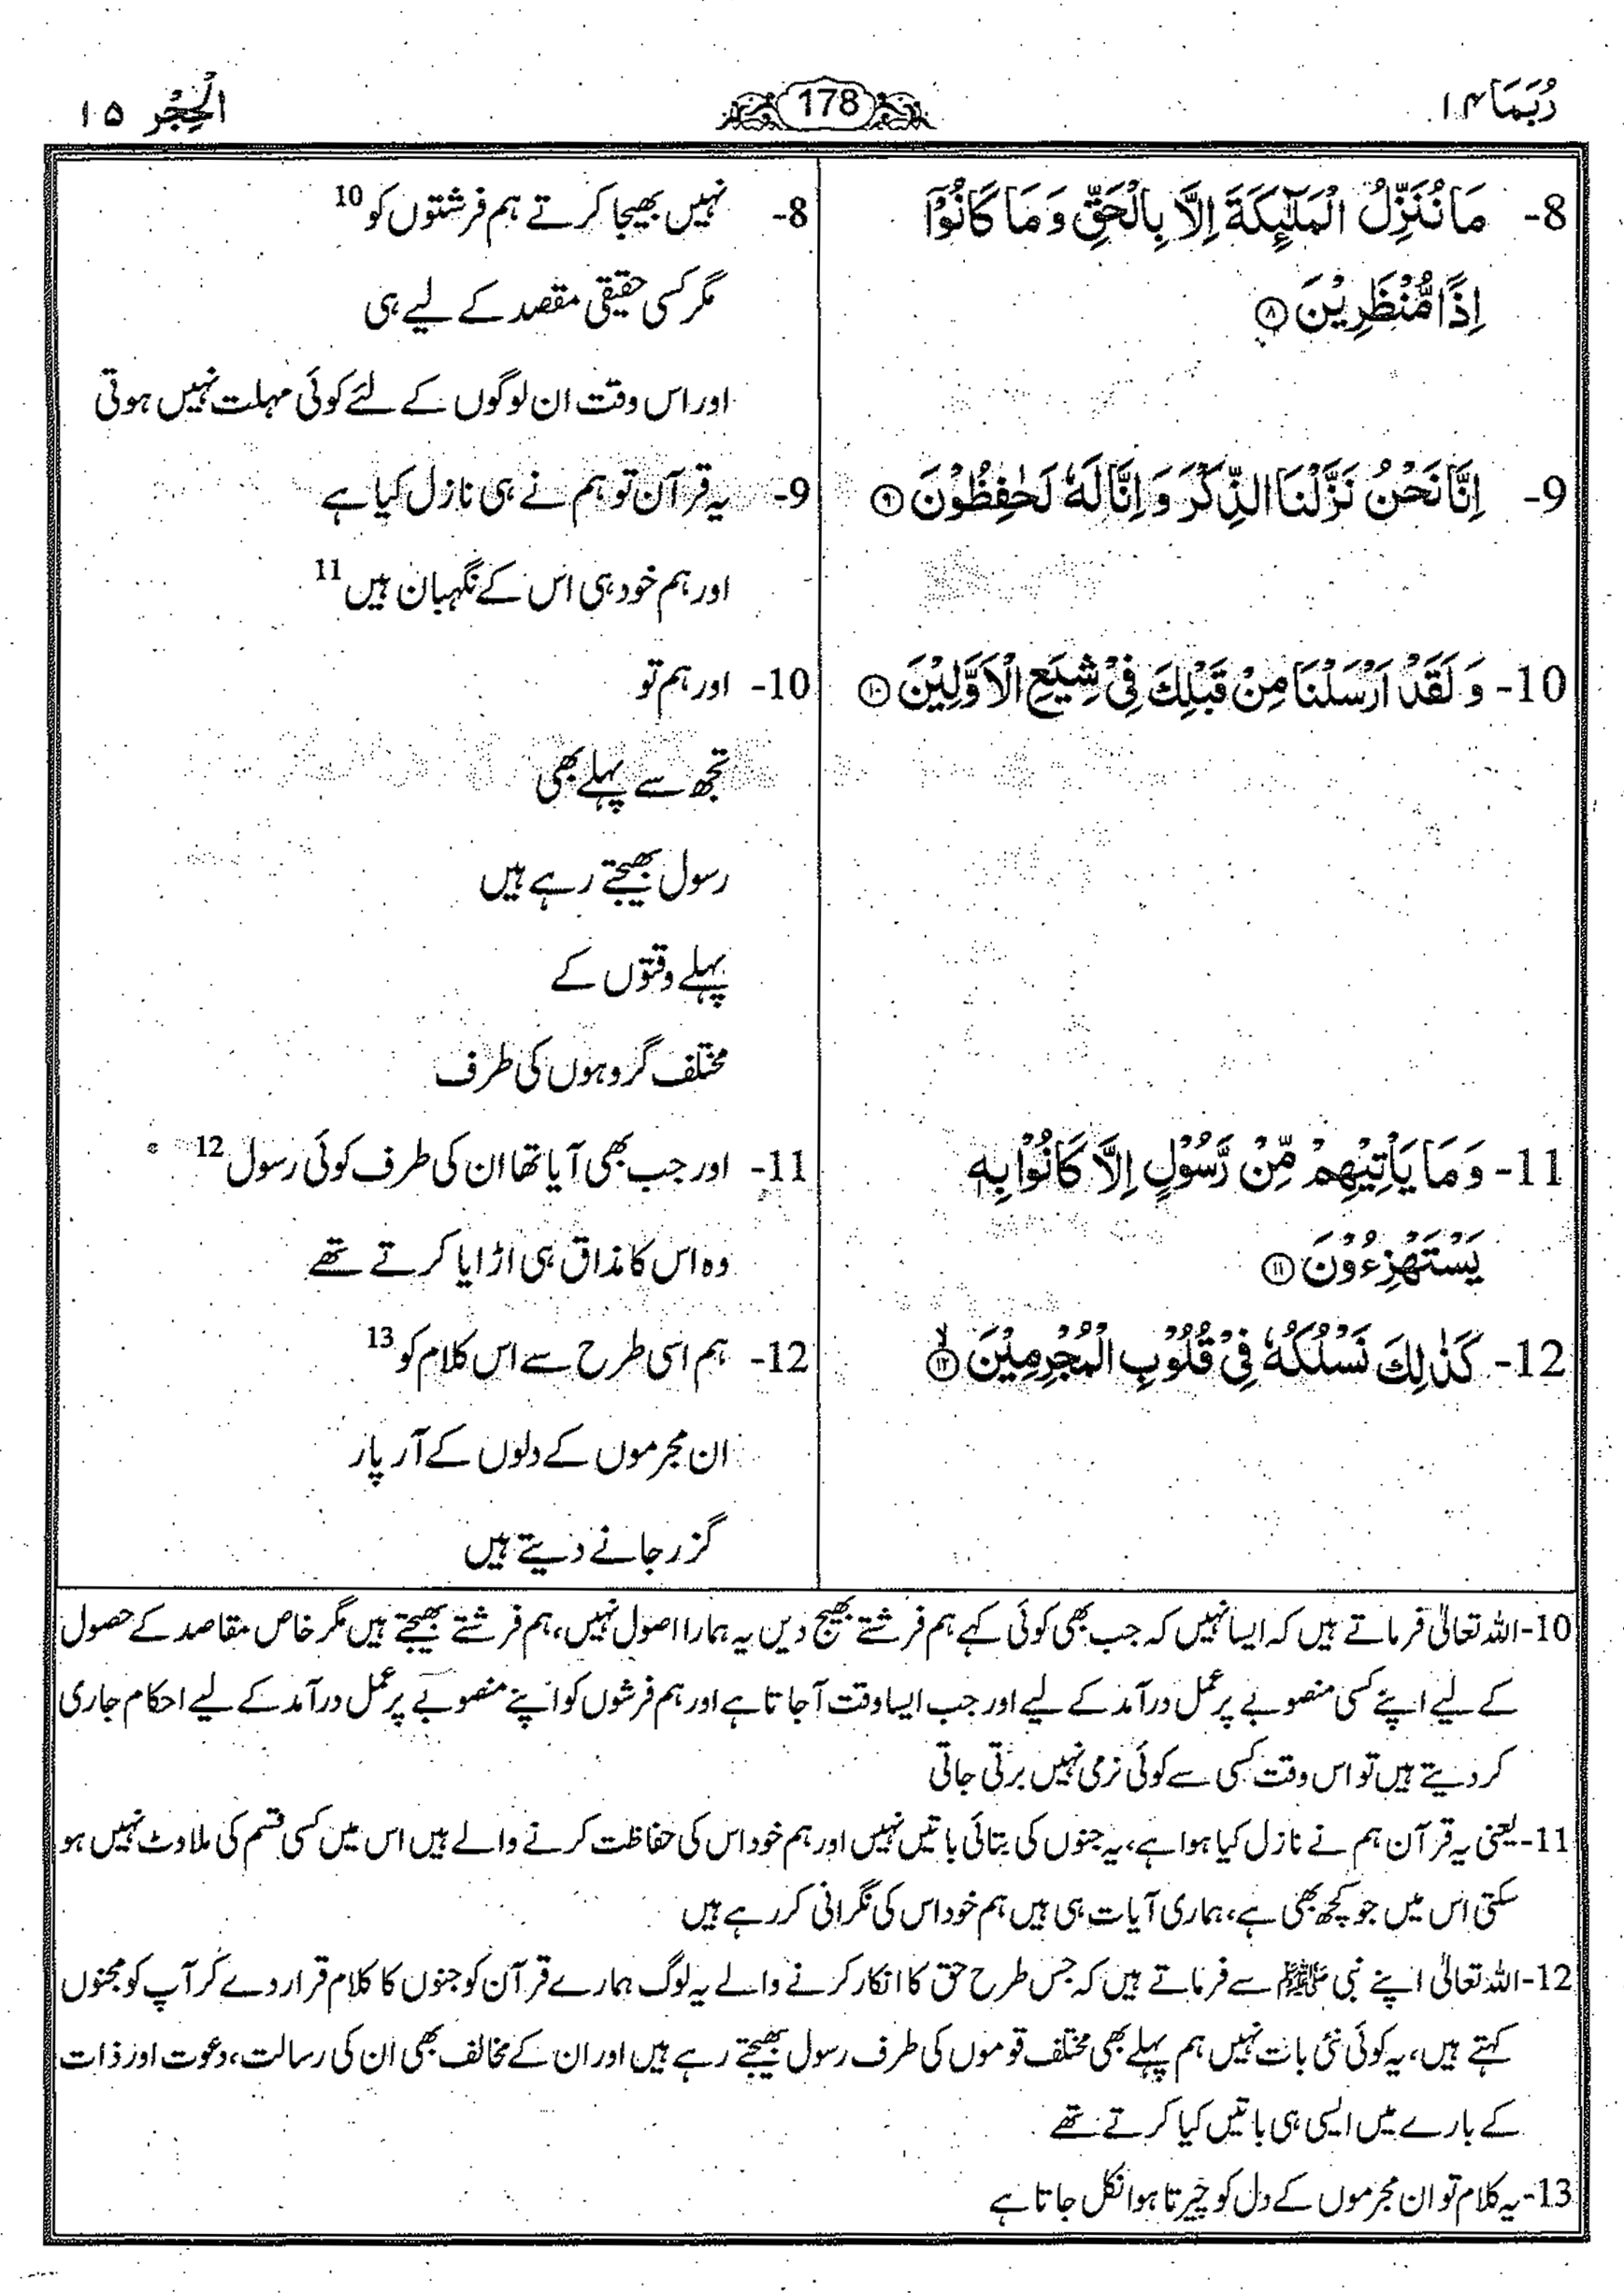 رُبَمَا ۱۴
178
الْحِجْر ۱۵
8- مَا نُنَزِّلُ الْمَلٰٓئِكَةَ اِلَّا بِالْحَقِّ وَ مَا كَانُوْۤا
اِذًا مُّنْظَرِيْنَ ۸
9- اِنَّا نَحْنُ نَزَّلْنَا الذِّكْرَ وَ اِنَّا لَهٗ لَحٰفِظُوْنَ ۹
10- وَ لَقَدْ اَرْسَلْنَا مِنْ قَبْلِكَ فِيْ شِيَعِ الْاَوَّلِيْنَ ۱۰
11- وَ مَا يَاْتِيْهِمْ مِّنْ رَّسُوْلٍ اِلَّا كَانُوْا بِهٖ
يَسْتَهْزِءُوْنَ ۱۱
12- كَذٰلِكَ نَسْلُكُهٗ فِيْ قُلُوْبِ الْمُجْرِمِيْنَ ۙ۱۲
8- نہیں بھیجا کرتے ہم فرشتوں کو 10
مگر کسی حقیقی مقصد کے لیے ہی
اور اس وقت ان لوگوں کے لئے کوئی مہلت نہیں ہوتی
9- یہ قرآن تو ہم نے ہی نازل کیا ہے
اور ہم خود ہی اس کے نگہبان ہیں 11
10- اور ہم تو
تجھ سے پہلے بھی
رسول بھیجتے رہے ہیں
پہلے وقتوں کے
مختلف گروہوں کی طرف
11- اور جب بھی آیا تھا ان کی طرف کوئی رسول 12
وہ اس کا مذاق ہی اڑایا کرتے تھے
12- ہم اسی طرح سے اس کلام کو 13
ان مجرموں کے دلوں کے آر پار
گزر جانے دیتے ہیں
10- اللہ تعالیٰ فرماتے ہیں کہ ایسا نہیں کہ جب بھی کوئی کہے ہم فرشتے بھیج دیں یہ ہمارا اصول نہیں، ہم فرشتے بھیجتے ہیں مگر خاص مقاصد کے حصول
کے لیے اپنے کسی منصوبے پر عمل درآمد کے لیے اور جب ایسا وقت آ جاتا ہے اور ہم فرشوں کو اپنے منصوبے پر عمل درآمد کے لیے احکام جاری
کر دیتے ہیں تو اس وقت کسی سے کوئی نرمی نہیں برتی جاتی
11- یعنی یہ قرآن ہم نے نازل کیا ہوا ہے، یہ جنوں کی بتائی باتیں نہیں اور ہم خود اس کی حفاظت کرنے والے ہیں اس میں کسی قسم کی ملاوٹ نہیں ہو
سکتی اس میں جو کچھ بھی ہے، ہماری آیات ہی ہیں ہم خود اس کی نگرانی کر رہے ہیں
12- اللہ تعالیٰ اپنے نبی ﷺ سے فرماتے ہیں کہ جس طرح حق کا انکار کرنے والے یہ لوگ ہمارے قرآن کو جنوں کا کلام قرار دے کر آپ کو مجنوں
کہتے ہیں، یہ کوئی نئی بات نہیں ہم پہلے بھی مختلف قوموں کی طرف رسول بھیجتے رہے ہیں اور ان کے مخالف بھی ان کی رسالت، دعوت اور ذات
کے بارے میں ایسی ہی باتیں کیا کرتے تھے
13- یہ کلام تو ان مجرموں کے دل کو چیرتا ہوا نکل جاتا ہے